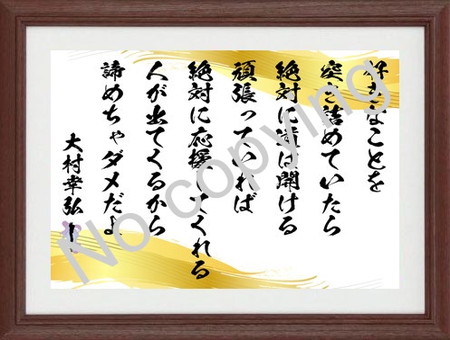 好きなことを
突き詰めていたら
絶対に道は開ける
頑張っていれば
絶対に応援してくれる
人が出てくるから
諦めちゃダメだよ
大村幸弘
No copying